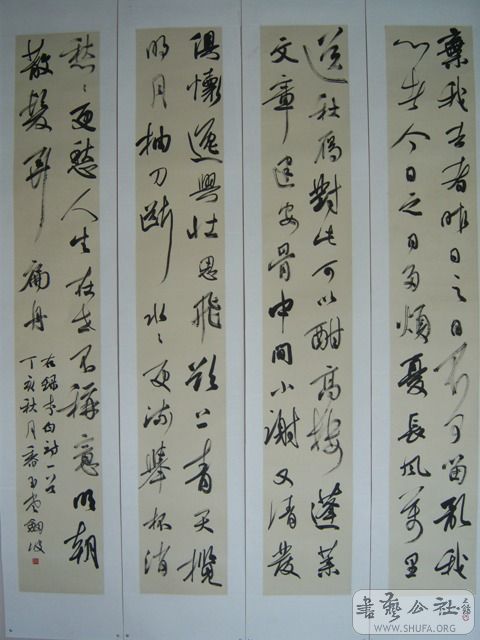 棄我去者昨日之日不可留亂我
心者今日之日多煩憂長風萬里
送秋雁對此可以酣高樓蓬萊
文章建安骨中間小謝又清發
俱懷逸興壯思飛欲上青天攬
明月抽刀斷水〻更流舉杯消
愁〻更愁人生在世不稱意明朝
散髮弄扁舟
右錄李白詩一首
丁亥秋月
書藝公社
WWW.SHUFA.ORG